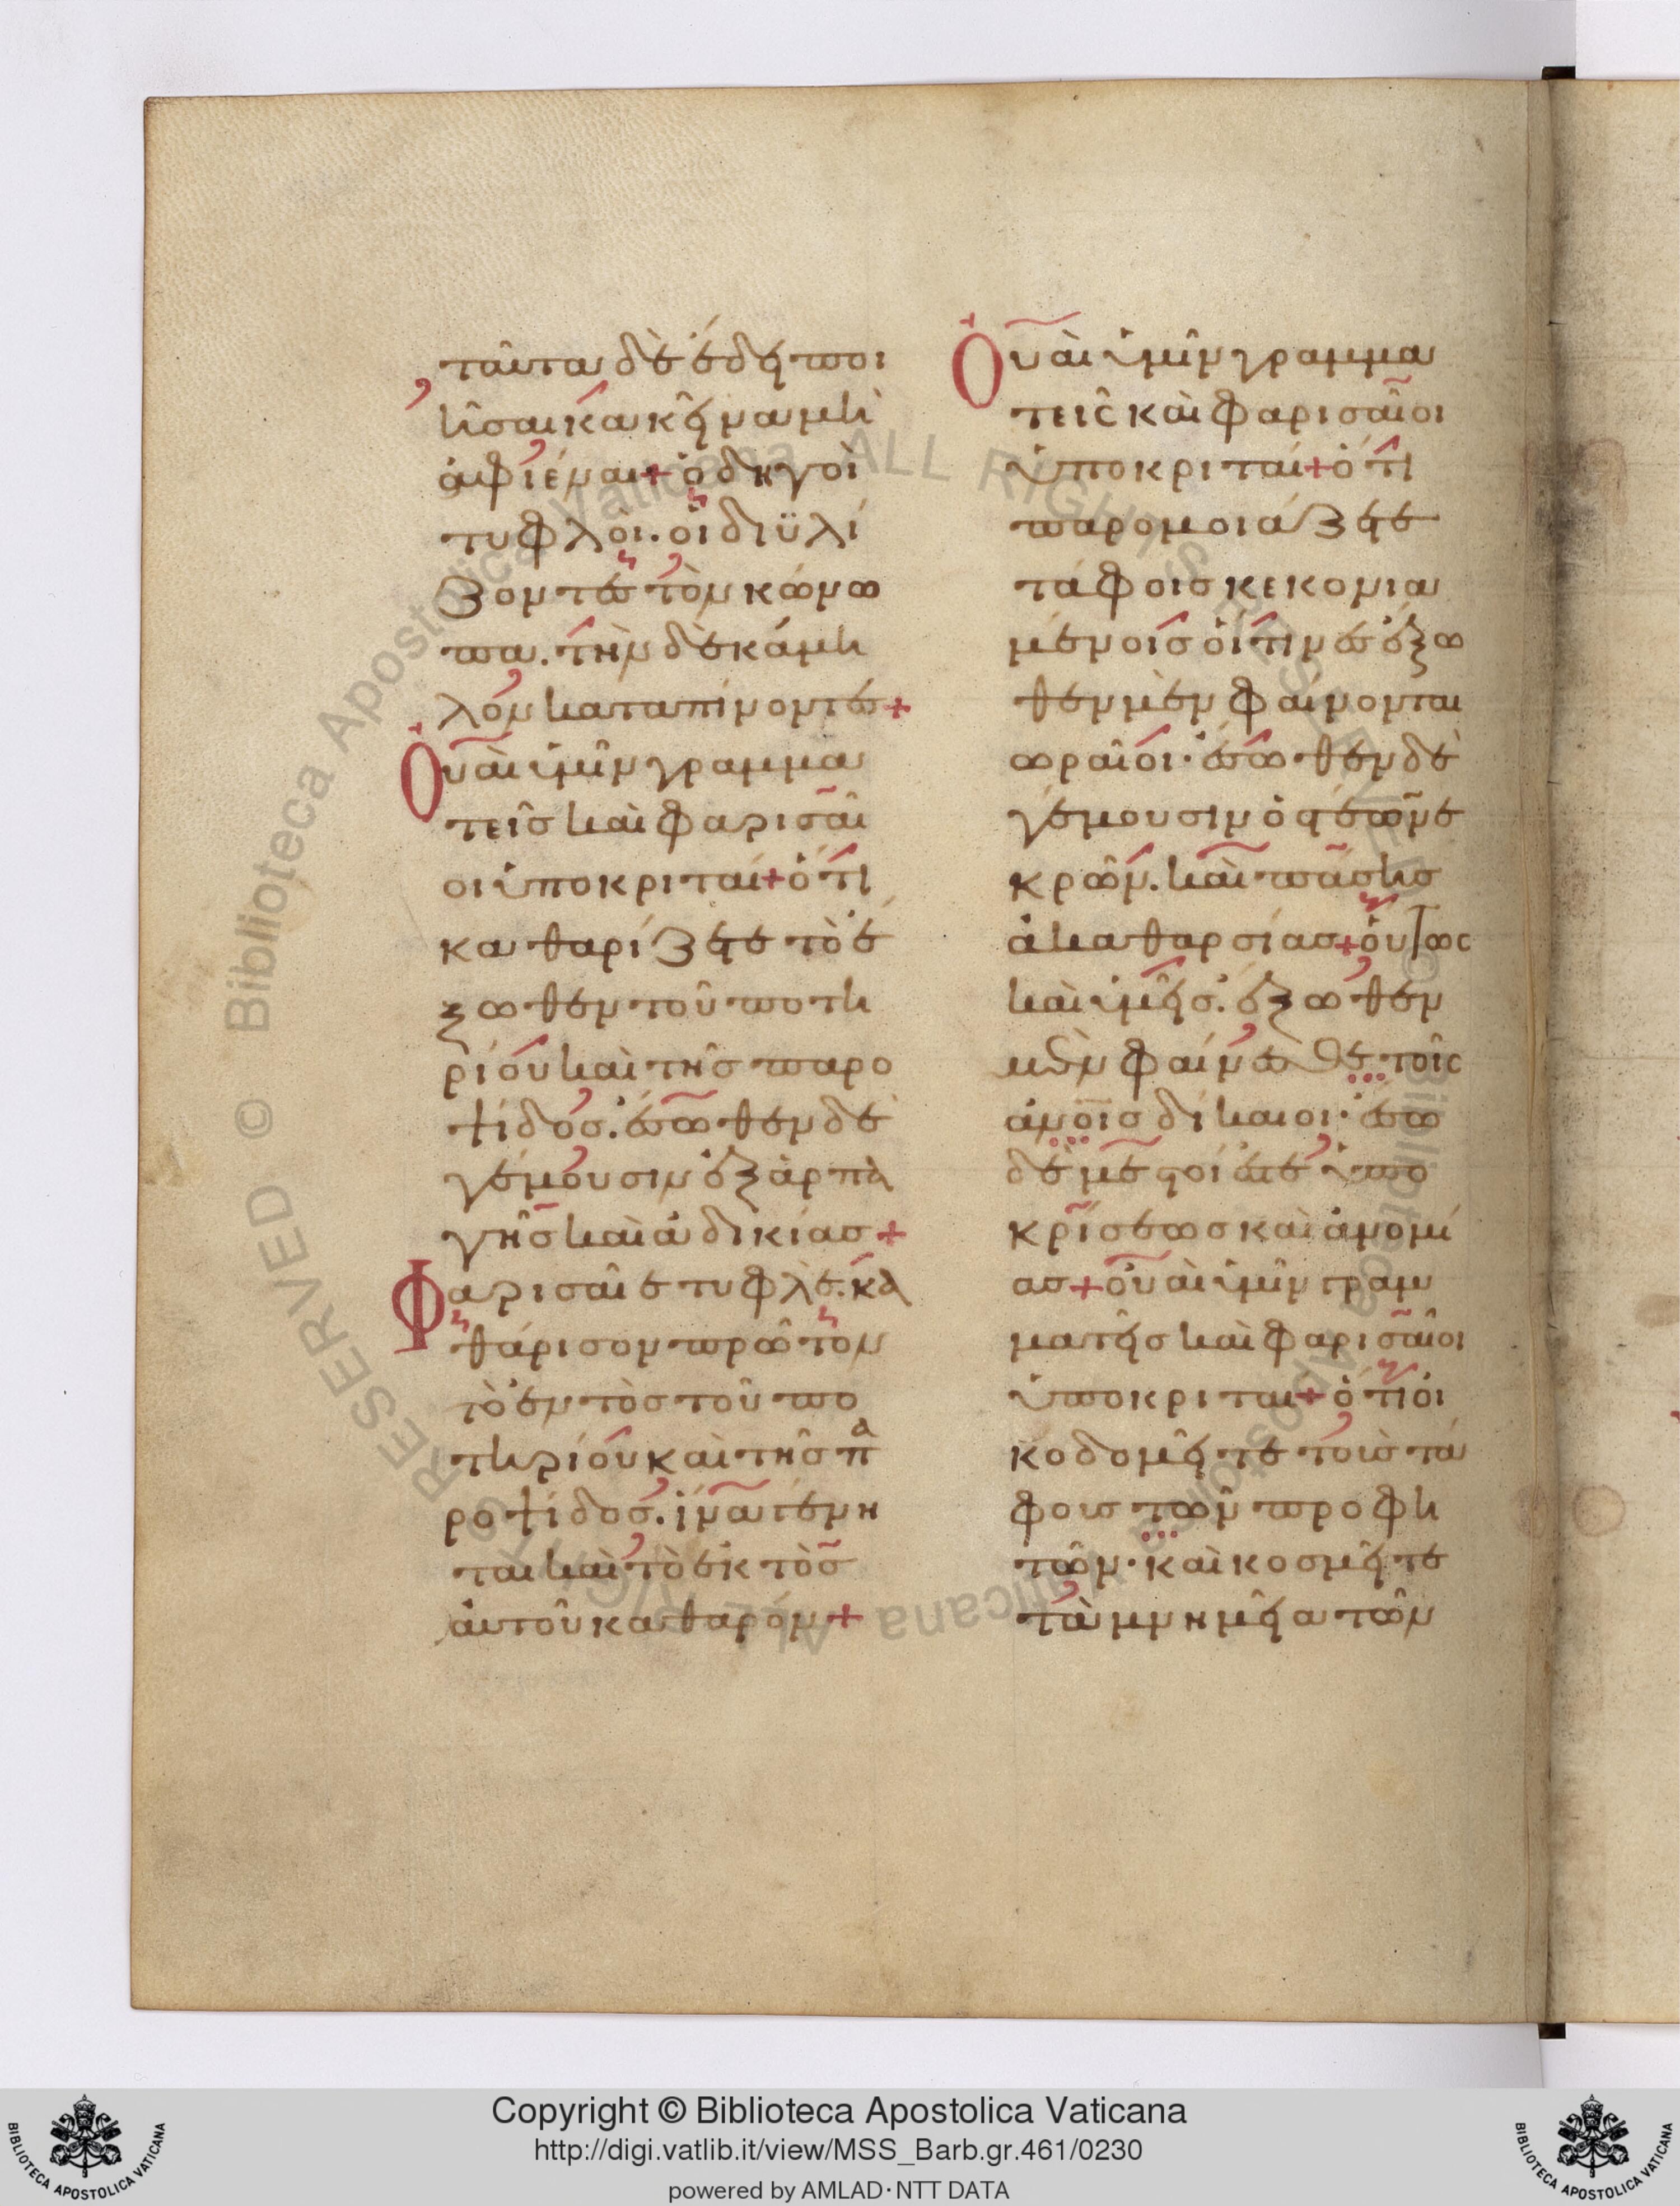 ταῦτα δὲ ἔδει ποι
ῆσαι κακεῖνα μὴ
ἀφιέναι + ὁδηγοὶ
τυφλοὶ. οἱ διϋλί
ζοντες τὸν κώνω
πα. τὴν δὲ κάμη
λον καταπίνοντες +
Οὐαὶ ὑμῖν γραμμα
τεῖς καὶ φαρισαῖ
οι ὑποκριταί + ὅτι
καθαρίζετε τὸ ἔ
ξωθεν τοῦ ποτη
ρίου καὶ τῆς παρο
ψίδος. ἔσωθεν δὲ
γέμουσιν ἐξ ἁρπα
γῆς καὶ ἀδικίας +
Φαρισαῖε τυφλὲ. κα
θάρισον πρῶτον
τὸ ἐντὸς τοῦ πο
τηρίου καὶ τῆς πα
ροψίδος. ἵνα γένη
ται καὶ τὸ ἐκτὸς
ἀυτοῦ καθαρόν +
Οὐαὶ ὑμῖν γραμμα
τεῖς καὶ φαρισαῖοι
ὑποκριταί + ὅτι
παρομοιάζετε
τάφοις κεκονια
μένοις οἵτινες ἔξω
θεν μὲν φαίνονται
ωραῖοι. ἔσωθεν δὲ
γέμουσιν ὀστέων νε
κρῶν. καὶ πάσης
ἀκαθαρσίας + ὅυτως
καὶ ὑμεῖς. ἔξωθεν
μὲν φαίνεσθε τοῖς
ἀνοις δίκαιοι. ἔσω
δέ μεστοί ἐστε ὑπο
κρίσεως καὶ ἀνομί
ας + οὐαὶ ὑμῖν γραμ
ματεῖς καὶ φαρισαῖοι
ὑποκριται + ὅτι ὀι
κοδομεῖτε τοὺς τά
φους τῶν προφη
τῶν. καὶ κοσμεῖτε
τὰ μνημεῖα τῶν
Copyright © Biblioteca Apostolica Vaticana
http://digi.vatlib.it/view/MSS_Barb.gr.461/0230
powered by AMLAD·NTT DATA
BIBLIOTECA APOSTOLICA VATICANA
BIBLIOTECA APOSTOLICA VATICANA
© Biblioteca Apostolica Vaticana ALL RIGHTS RESERVED
© Biblioteca Apostolica Vaticana ALL RIGHTS RESERVED